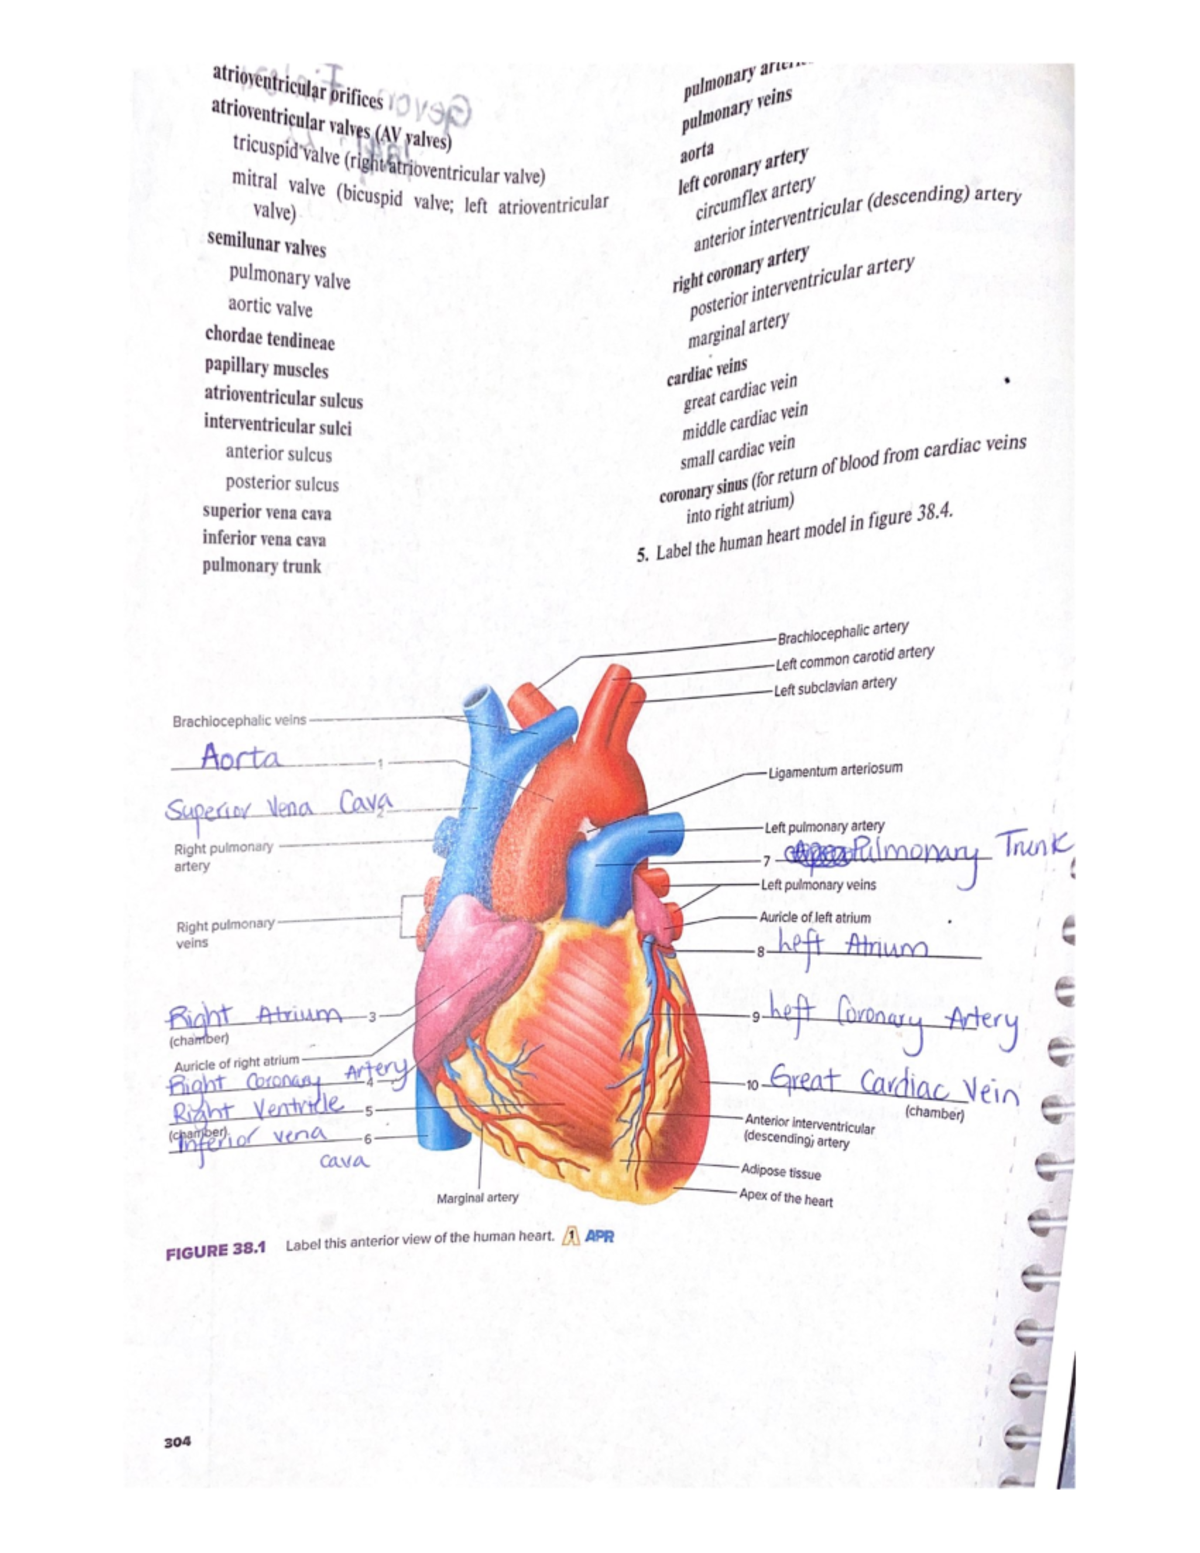 atrioventricular orifices
atrioventricular valves (AV valves)
tricuspid valve (right atrioventricular valve)
mitral valve (bicuspid valve; left atrioventricular
valve)
semilunar valves
pulmonary valve
aortic valve
chordae tendineae
papillary muscles
atrioventricular sulcus
interventricular sulci
anterior sulcus
posterior sulcus
superior vena cava
inferior vena cava
pulmonary trunk
pulmonary
pulmonary veins
aorta
left coronary artery
circumflex artery
anterior interventricular (descending) artery
right coronary artery
posterior interventricular artery
marginal artery
cardiac veins
great cardiac vein
middle cardiac vein
small cardiac vein
coronary sinus (for return of blood from cardiac veins
into right atrium)
5. Label the human heart model in figure 38.4.
Brachiocephalic artery
Left common carotid artery
Left subclavian artery
Brachiocephalic veins
Aorta 1
Superior Vena Cava 2
Right pulmonary
artery
Right pulmonary
veins
Right Atrium 3
(chamber)
Auricle of right atrium
Right Coronary Artery 4
Right Ventricle 5
(chamber)
Inferior vena 6
cava
Ligamentum arteriosum
Left pulmonary artery
7 Pulmonary Trunk
Left pulmonary veins
Auricle of left atrium
8 Left Atrium
9 Left Coronary Artery
10 Great Cardiac Vein
(chamber)
Anterior interventricular
(descending) artery
Adipose tissue
Apex of the heart
Marginal artery
FIGURE 38.1 Label this anterior view of the human heart. 1 APR
304